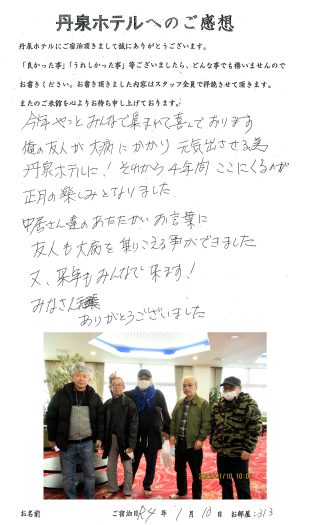 丹泉ホテルへのご感想
丹泉ホテルにご宿泊頂きまして誠にありがとうございます。
「良かった事」「うれしかった事」等ございましたら、どんな事でも構いませんので
お書きください。お書き頂きました内容はスタッフ全員で拝読させて頂きます。
またのご来館を心よりお待ち申し上げております。
今年やっとみんなで集まれて喜んでおります
俺の友人が大病にかかり 元気出させる為
丹泉ホテルに、! それから4年間 ここにくるのが
正月の楽しみとなりました
中居さん達のあたたかいお言葉に
友人も大病を乗りこえる事ができました
又、来年もみんなで来ます!
みなさん
ありがとうございました
10 10:0
お名前 ご宿泊日 R4 年 1 月 10 日 お部屋:313